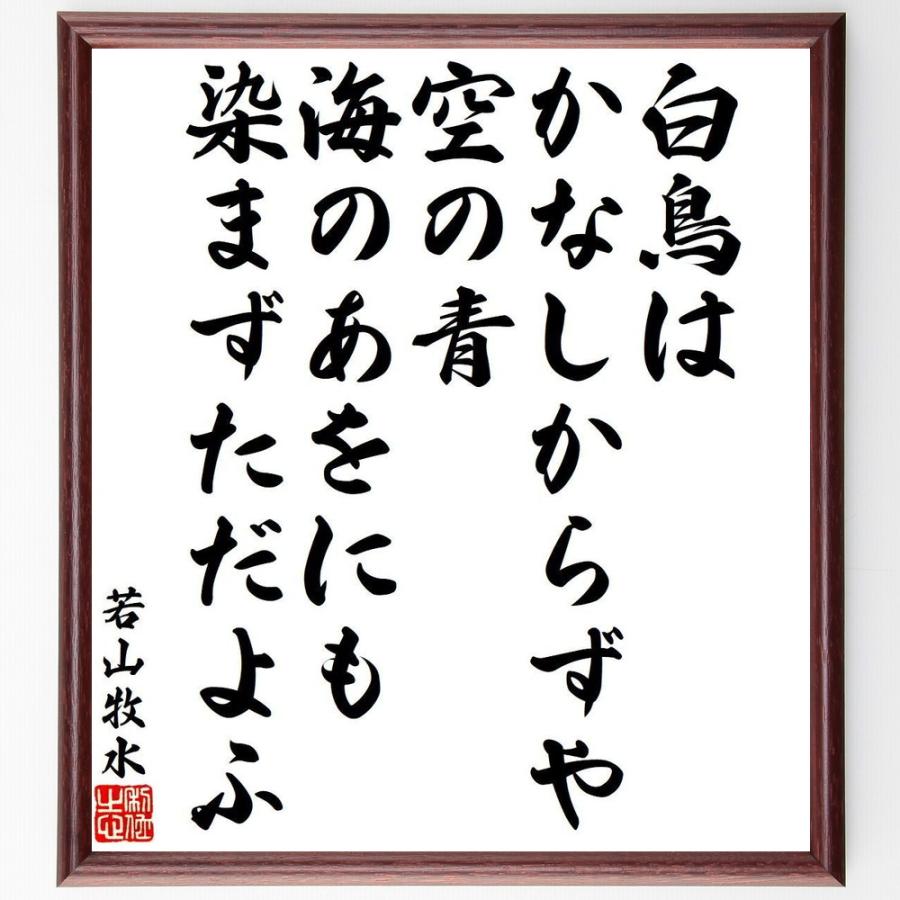 白鳥は
かなしからずや
空の青
海のあをにも
染まずただよふ
若山牧水